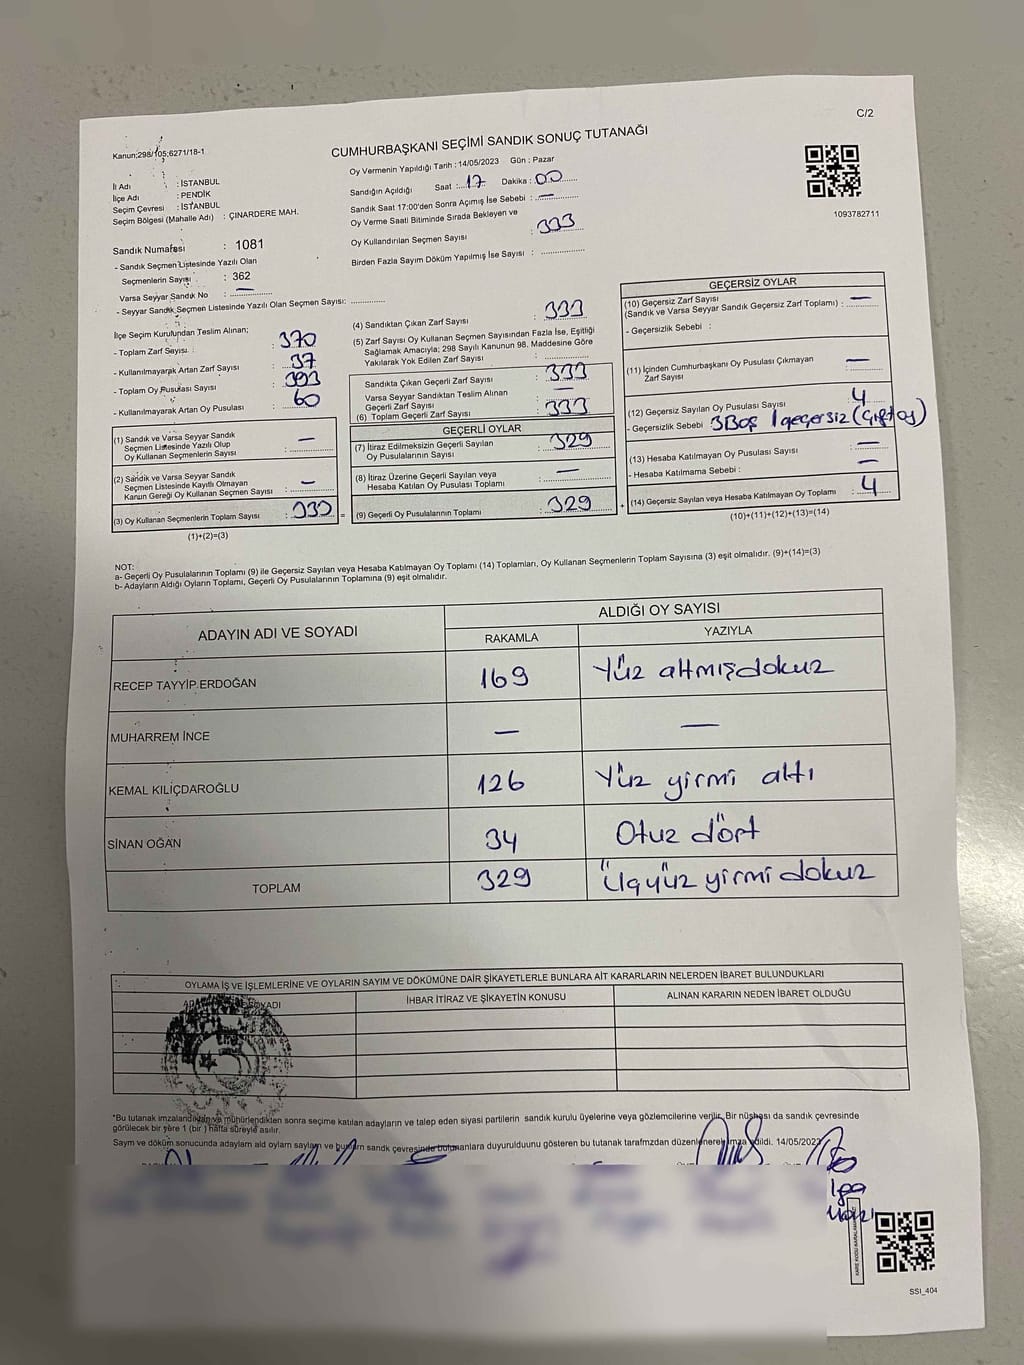 C/2
Kanun:298/105;6271/18-1
CUMHURBAŞKANI SEÇİMİ SANDIK SONUÇ TUTANAĞI
Oy Vermenin Yapıldığı Tarih : 14/05/2023 Gün : Pazar
İl Adı : İSTANBUL
İlçe Adı : PENDİK
Seçim Çevresi : İSTANBUL
Seçim Bölgesi (Mahalle Adı) : ÇINARDERE MAH.
Sandığın Açıldığı Saat : 17 Dakika : 00
Sandık Saat 17:00'den Sonra Açımış İse Sebebi : —
Oy Verme Saati Bitiminde Sırada Bekleyen ve
Oy Kullandırılan Seçmen Sayısı : 333
Birden Fazla Sayım Döküm Yapılmış İse Sayısı :
1093782711
Sandık Numarası : 1081
- Sandık Seçmen Listesinde Yazılı Olan
Seçmenlerin Sayısı : 362
Varsa Seyyar Sandık No : —
- Seyyar Sandık Seçmen Listesinde Yazılı Olan Seçmen Sayısı:
İlçe Seçim Kurulundan Teslim Alınan;
- Toplam Zarf Sayısı : 370
- Kullanılmayarak Artan Zarf Sayısı : 37
- Toplam Oy Pusulası Sayısı : 393
- Kullanılmayarak Artan Oy Pusulası : 60
(1) Sandık ve Varsa Seyyar Sandık
Seçmen Listesinde Yazılı Olup
Oy Kullanan Seçmenlerin Sayısı : —
(2) Sandık ve Varsa Seyyar Sandık
Seçmen Listesinde Kayıtlı Olmayan
Kanun Gereği Oy Kullanan Seçmen Sayısı : —
(3) Oy Kullanan Seçmenlerin Toplam Sayısı : 333 =
(1)+(2)=(3)
(4) Sandıktan Çıkan Zarf Sayısı : 333
(5) Zarf Sayısı Oy Kullanan Seçmen Sayısından Fazla İse, Eşitliği
Sağlamak Amacıyla; 298 Sayılı Kanunun 98. Maddesine Göre
Yakılarak Yok Edilen Zarf Sayısı :
Sandıkta Çıkan Geçerli Zarf Sayısı : 333
Varsa Seyyar Sandıktan Teslim Alınan
Geçerli Zarf Sayısı : —
(6) Toplam Geçerli Zarf Sayısı : 333
GEÇERLİ OYLAR
(7) İtiraz Edilmeksizin Geçerli Sayılan
Oy Pusulalarının Sayısı : 329
(8) İtiraz Üzerine Geçerli Sayılan veya
Hesaba Katılan Oy Pusulası Toplamı : —
(9) Geçerli Oy Pusulalarının Toplamı : 329 +
GEÇERSİZ OYLAR
(10) Geçersiz Zarf Sayısı
(Sandık ve Varsa Seyyar Sandık Geçersiz Zarf Toplamı) : —
- Geçersizlik Sebebi :
(11) İçinden Cumhurbaşkanı Oy Pusulası Çıkmayan
Zarf Sayısı : —
(12) Geçersiz Sayılan Oy Pusulası Sayısı : 4
- Geçersizlik Sebebi 3 Boş 1 geçersiz (Çift oy)
(13) Hesaba Katılmayan Oy Pusulası Sayısı : —
- Hesaba Katılmama Sebebi : —
(14) Geçersiz Sayılan veya Hesaba Katılmayan Oy Toplamı : 4
(10)+(11)+(12)+(13)=(14)
NOT:
a- Geçerli Oy Pusulalarının Toplamı (9) ile Geçersiz Sayılan veya Hesaba Katılmayan Oy Toplamı (14) Toplamları, Oy Kullanan Seçmenlerin Toplam Sayısına (3) eşit olmalıdır. (9)+(14)=(3)
b- Adayların Aldığı Oyların Toplamı, Geçerli Oy Pusulalarının Toplamına (9) eşit olmalıdır.
ADAYIN ADI VE SOYADI
ALDIĞI OY SAYISI
RAKAMLA YAZIYLA
RECEP TAYYİP ERDOĞAN 169 Yüz altmışdokuz
MUHARREM İNCE — —
KEMAL KILIÇDAROĞLU 126 Yüz yirmi altı
SİNAN OĞAN 34 Otuz dört
TOPLAM 329 Üçyüz yirmi dokuz
OYLAMA İŞ VE İŞLEMLERİNE VE OYLARIN SAYIM VE DÖKÜMÜNE DAİR ŞİKAYETLERLE BUNLARA AİT KARARLARIN NELERDEN İBARET BULUNDUKLARI
SOYADI İHBAR İTİRAZ VE ŞİKAYETİN KONUSU ALINAN KARARIN NEDEN İBARET OLDUĞU
*Bu tutanak imzalandıktan ve mühürlendikten sonra seçime katılan adayların ve talep eden siyasi partilerin sandık kurulu üyelerine veya gözlemcilerine verilir. Bir nüshası da sandık çevresinde
görülecek bir yere 1 (bir ) hafta süreyle asılır.
Sayım ve döküm sonucunda adayların aldı oyların sayları ve bunların sandık çevresinde bulunanlara duyurulduunu gösteren bu tutanak tarafmzdan düzenlenerek imza edildi. 14/05/2023
SSI_404